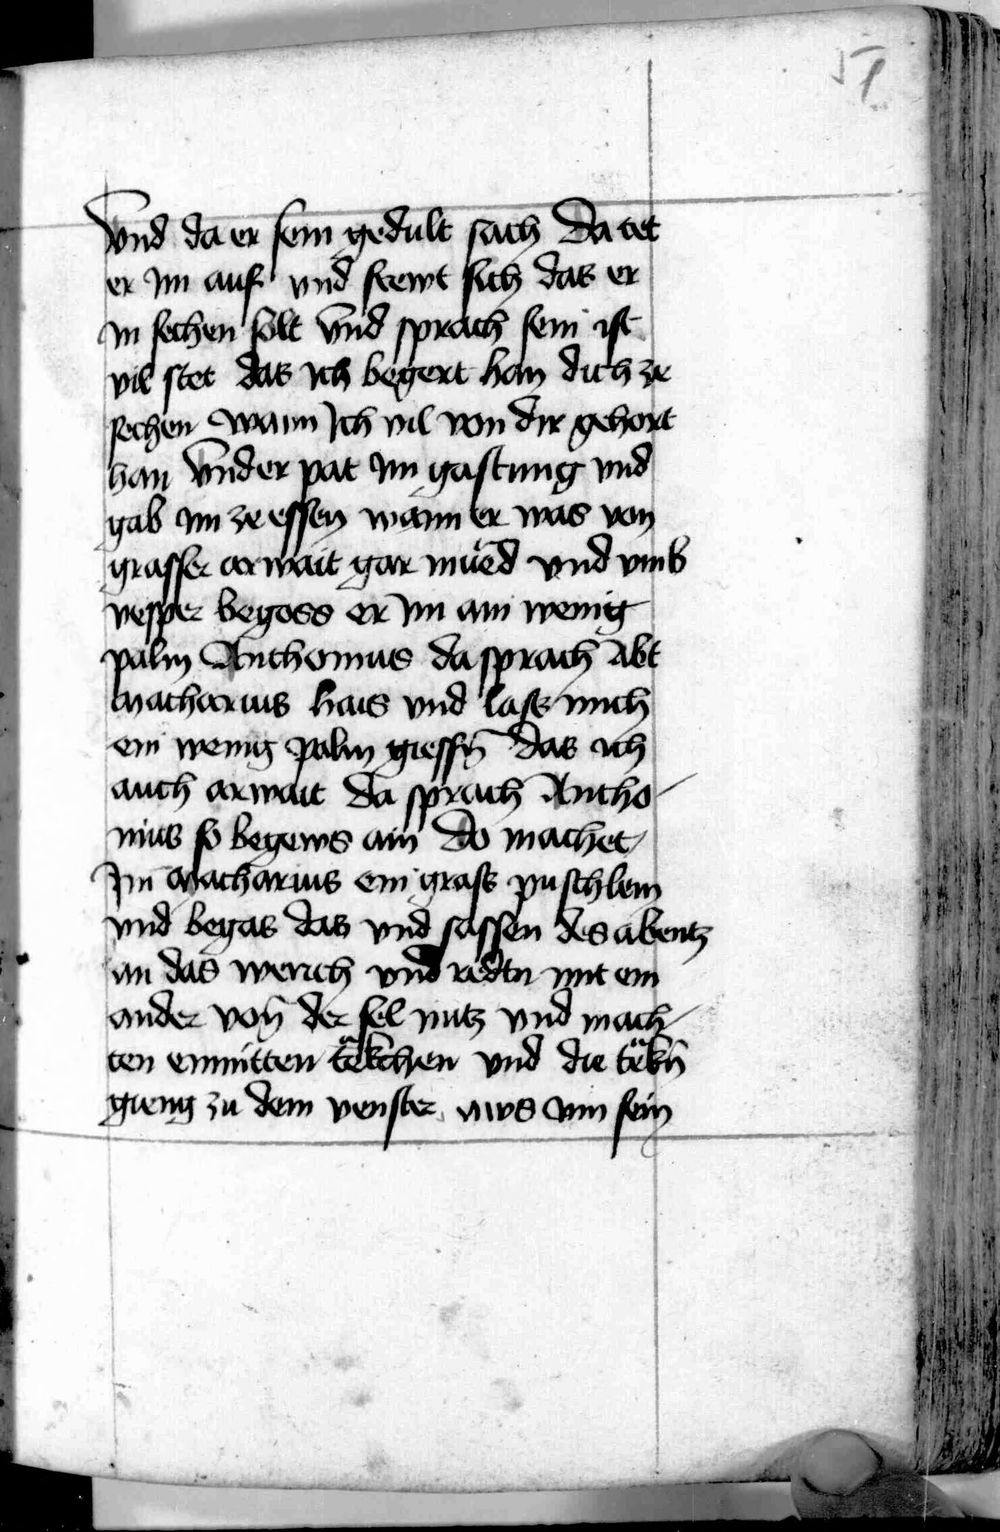 57
Vnd da er sein gedult sach Da tet
er Im auf vnd frewt sich das er
In sechen solt Vnd sprach sein ist
vil stet das ich begert han dich ze
sechen Wann Ich vil von dir gehort
han Vnd er pat Im gastung vnd
gab Im ze essen wann er was von
grasser arwait gar mued vnd vmb
vesper begoss er Im ain wenig
palm Anthonius da sprach Abt
Macharius hais vnd lass mich
ein wenig palm giessn̄ das ich
auch arwait Da sprach Antho
nius so begews ain Do machet
Im Macharius ein grass puschlein
vnd begas das vnd sassen des abentz
an das werich vnd redtn mit ein
ander von̄ der sel nutz vnd mach
ten enmitten täkchen vnd die täkn̄
gieng zu dem venster aws von sein